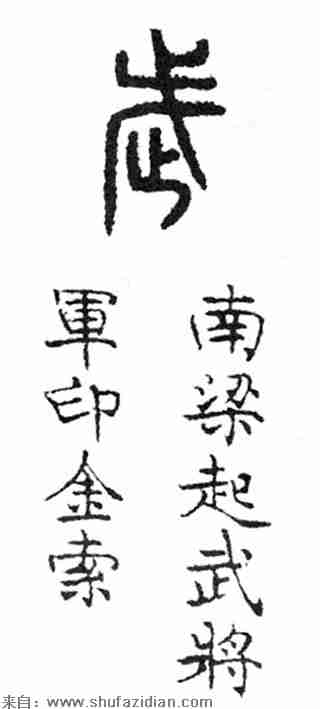 武
南梁起武將
軍印金索
来自：www.shufazidian.com